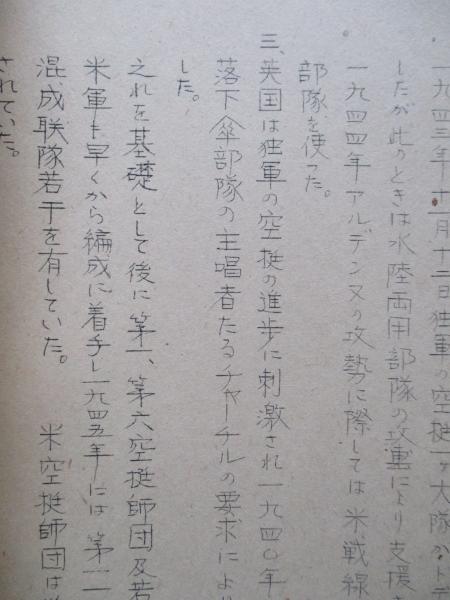 一九四三年十一月十二日独軍の空挺一ヶ大隊が
したが此のときは水陸両用部隊の攻撃により支援
一九四四年アルデンヌの攻勢に際しては米戦線
部隊を使った。
三、英国は独軍の空挺の進歩に刺激され一九四〇年
落下傘部隊の主唱者たるチャーチルの要求により
した。
之れを基礎として後に第一、第六空挺師団及若
米軍も早くから編成に着手し一九四五年には第一一
混成聯隊若干を有していた。 米空挺師団は
されていた。